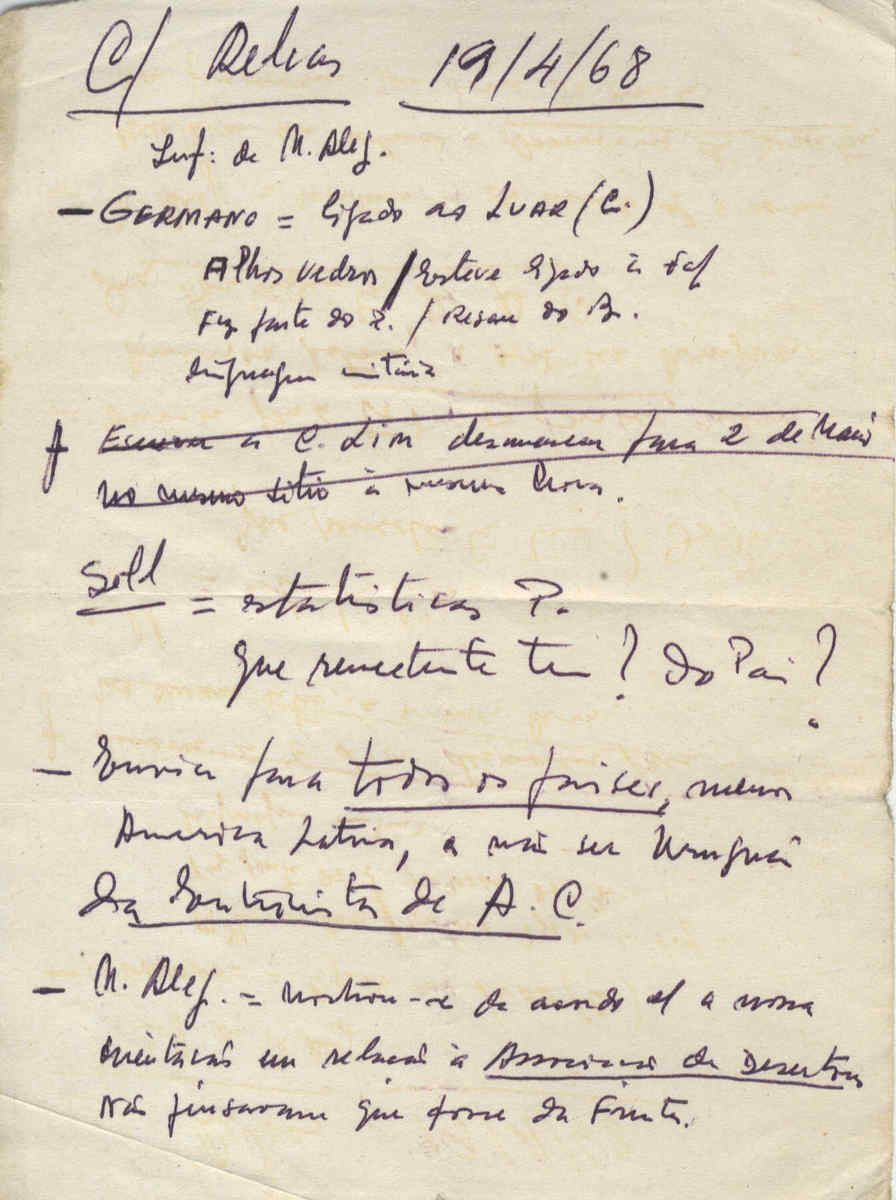 C/ Relvas 19/4/68
Inf: de M. Aleg.
– GERMANO = ligado ao LUAR (C.)
Alhos Vedros / Esteve ligado à
Fez parte do P. / do
linguagem
a C. Lim desmarcar para 2 de Maio
no mesmo sitio à mesma hora.
Sell
= estatísticas P.
que remetente tem? Do Pai?
– Enviar para todos os países, menos
America Latina, a não ser Uruguai
da Entrevista de A. C.
– M. Aleg. = Mostrou-se de acordo c/ a nossa
orientação em relação à Associação de Desertores
Não pensavam que fosse da Frente.